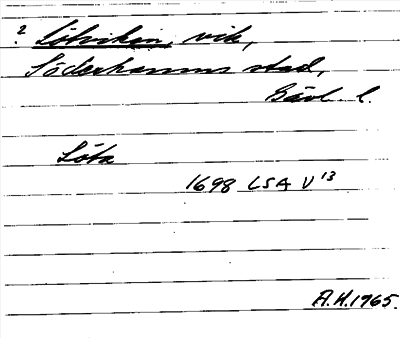 ? Lötviken, vik,
Söderhamns stad,
Gävl. l.
Löta
1698 LSA V 13
A.H. 1965.